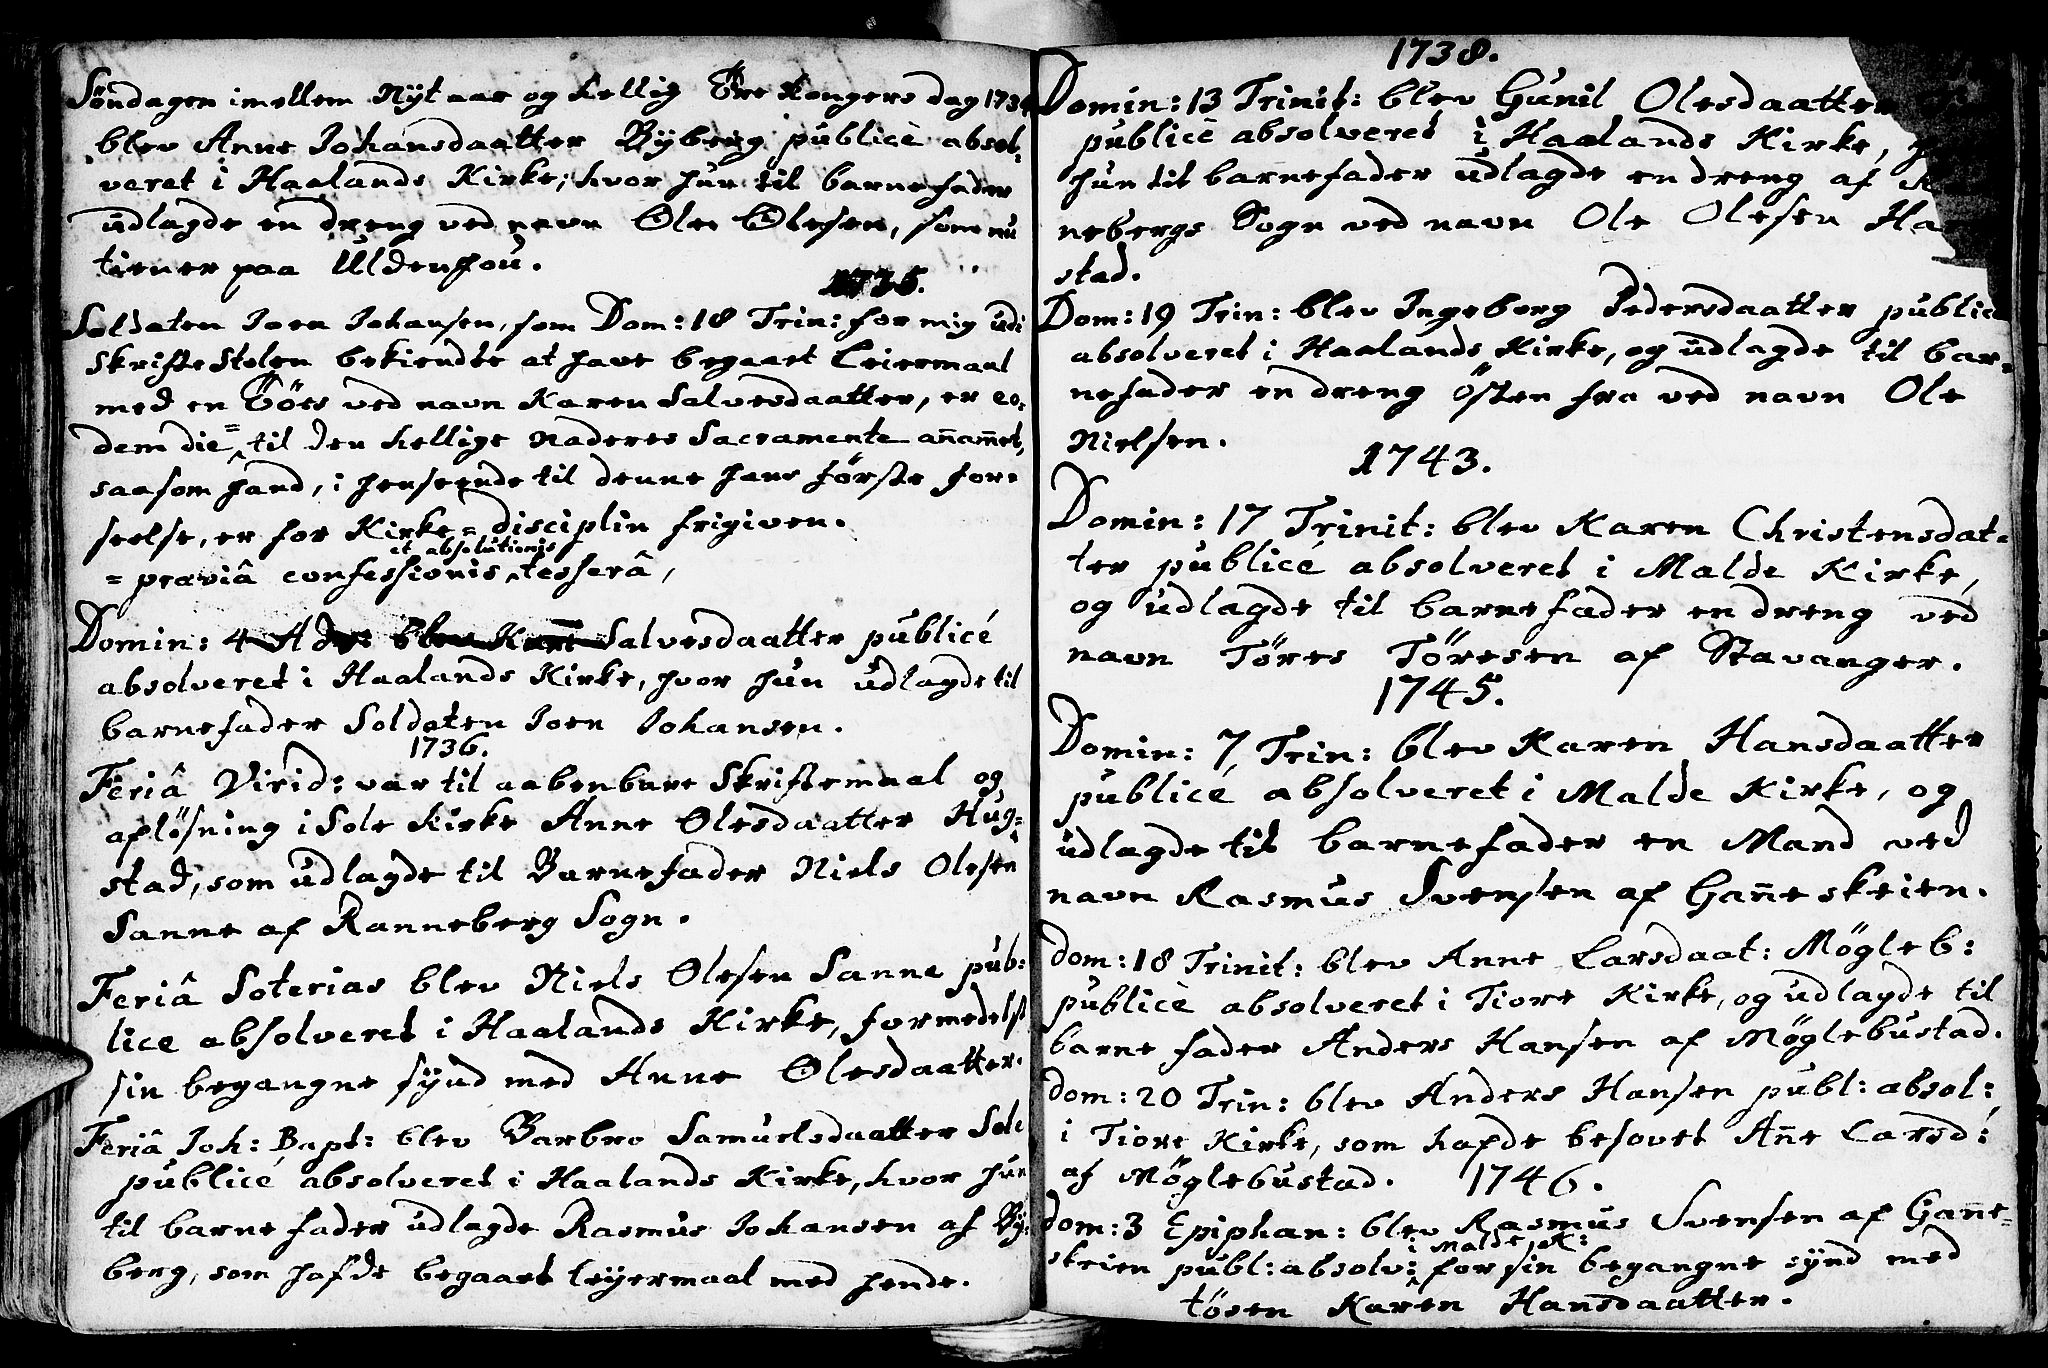 Søndagen imellem Nyt aar og Hellig Tre Kongers dag 1734
blev Anne Johansdaatter Ryberg publicè absol:
veret i Haalands Kirke; hvor hun til barnefader
udlagde en dreng ved navn Ole Olesen, som nu
tiener paa Uldenhou.
1735.
Soldaten Joen Johansen, som Dom: 18 Trin: for mig udi
Skriftestolen bekiendte at have begaaet Leiermaal
med en Tøes ved navn Karen Salvesdaatter, er eo-
dem die = til den hellige Naderes Sacramente anammet,
saasom hand, i henseende til denne hans første for-
seelse, er for Kirke=disciplin frigiven.
et absolutionis
= præviâ confessionis tesserâ,
Domin: 4 Adv: blev Karen Salvesdaatter publicé
absolveret i Haalands Kirke, hvor hun udlagde til
barnefader Soldaten Joen Johansen.
1736.
Feriâ Virid: var til aabenbare Skriftemaal og
afløsning i Sole Kirke Anne Olesdaatter Hug=
stad, som udlagde til Barnefader Niels Olesen
Sanne af Ranneberg Sogn.
Feriâ Soterias blev Niels Olesen Sanne pub:
lice absolveret i Haalands Kirke, formedelst
sin begangne synd med Anne Olesdaatter.
Feriâ Joh: Bapt: blev Barbro Samuelsdaatter Sole
publicé absolveret i Haalands Kirke, hvor hun
til barnefader udlagde Rasmus Johansen af Ry-
berg, som hafde begaaet leyermaal med hende.
1738.
Domin: 13 Trinit: blev Gunil Olesdaatter
publicè absolveret i Haalands Kirke,
hun til barnefader udlagde en dreng af
nebergs Sogn ved navn Ole Olesen Ha
stad.
Dom: 19 Trin: blev Ingeborg Pedersdaatter public
absolveret i Haalands Kirke, og udlagde til bar=
nefader en dreng østen fra ved navn Ole
Nielsen.
1743.
Domin: 17 Trinit: blev Karen Christensdat-
ter publicé absolveret i Malde Kirke,
og udlagde til barnefader en dreng ved
navn Tøres Tøresen af Stavanger.
1745.
Domin: 7, Trin: blev Karen Hansdaatter
publicé absolveret i Malde Kirke, og
udlagde til barnefader en Mand ved
navn Rasmus Svensen af Ganneskeien.
dom: 18 Trinit: blev Anne Larsdaat: Møgleb:
publicè absolveret i Tiore Kirke, og udlagde til
barne fader Anders Hansen af Møglebustad.
dom: 20 Trin: blev Anders Hansen publ: absol:
i Tiore Kirke, som hafde besovet Anne Larsd:
af Møglebustad. 1746.
dom: 3 Epiphan: blev Rasmus Svensen af Ganne=
i Malde K:
skeien publ: absolv: for sin begangne synd med
tøsen Karen Hansdaatter.